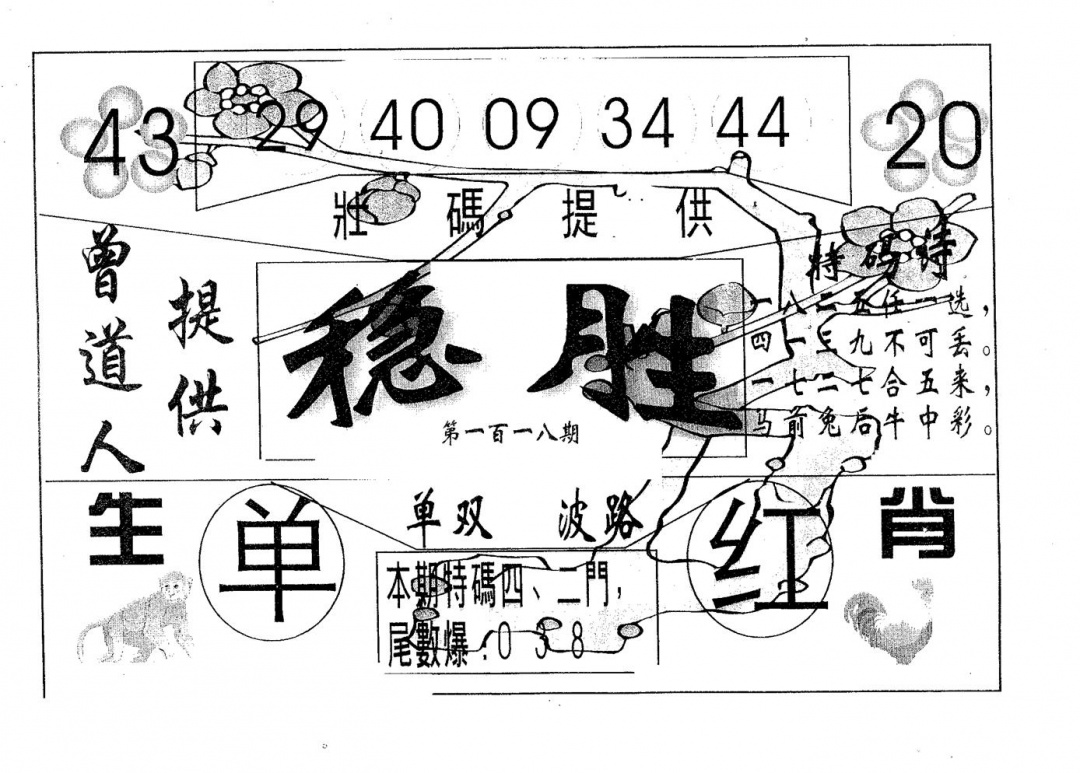 43 29 40 09 34 44 20
壯碼提供
曾道人
提供
稳胜
第一百一八期
特码诗
一八二五任一选，
四一三九不可丢。
一七二七合五来，
马前兔后牛中彩。
生肖
单双 波路
单
红
本期特碼四、二門，
尾數爆：0 3 8